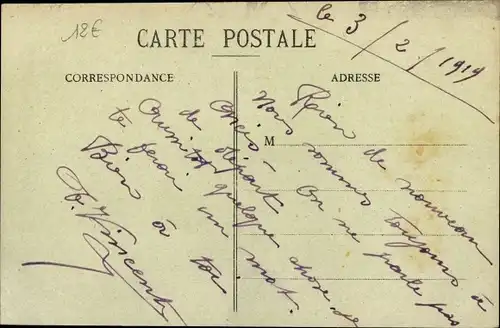 12€
le 3/2/1919
CARTE POSTALE
CORRESPONDANCE
ADRESSE
M
Rien de nouveau
Nous sommes toujours à
On ne parle pas
de départ
quelque chose de
te ferai un mot.
Bien à toi
Vincent